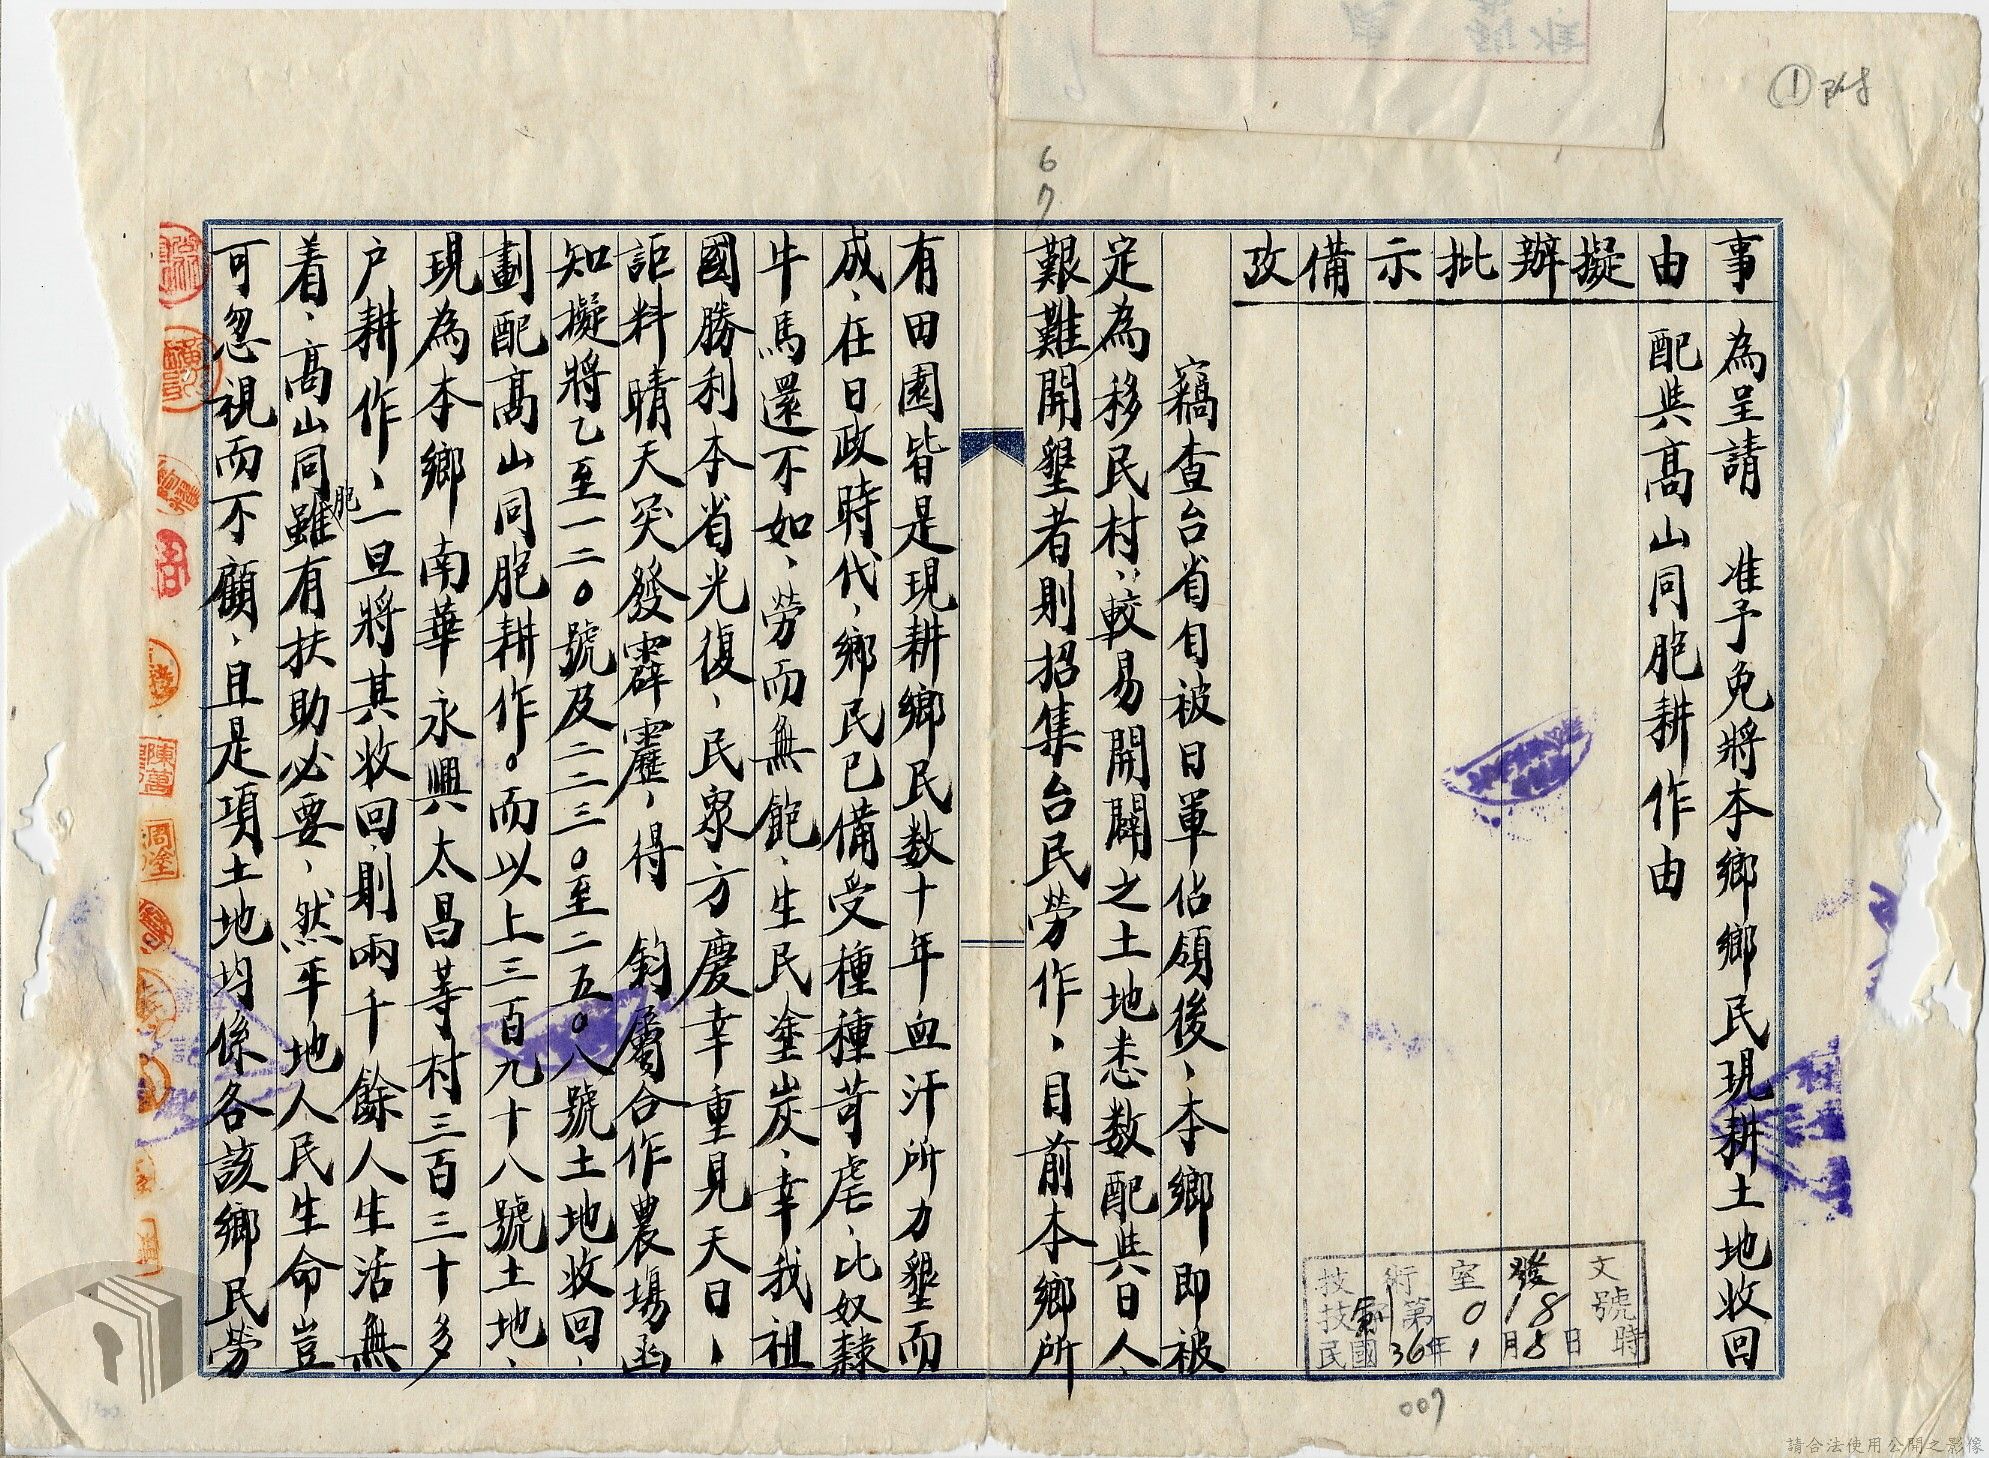 ①
67
事 為呈請 准予免將本鄉鄉民現耕土地收回
由 配與高山同胞耕作由
擬
辦
批
示
備
攷
竊查台省自被日軍佔領後、本鄉即被
定為移民村、較易開闢之土地悉数配與日人、
艱難開墾者則招集台民勞作、目前本鄉所
有田園皆是現耕鄉民数十年血汗所力墾而
成、在日政時代、鄉民已備受種種苛虐、比奴隸
牛馬還不如、勞而無飽、生民塗炭、幸我祖
國勝利本省光復、民眾方慶幸重見天日、
詎料晴天突發霹靂、得 鈞屬合作農場函
知擬將乙至一二0號及二二三0至二五0八號土地收回、
劃配高山同胞耕作。而以上三百九十八號土地、
現為本鄉南華永興太昌等村三百三十多
户耕作、一旦將其收回、則兩千餘人生活無
着、高山同胞雖有扶助必要、然平地人民生命豈
可忽視而不顧、且是項土地均係各該鄉民勞
陳萬
周塗
技術室發文
技 第018號
民國36年1月8日 時
007
請合法使用公開之影像